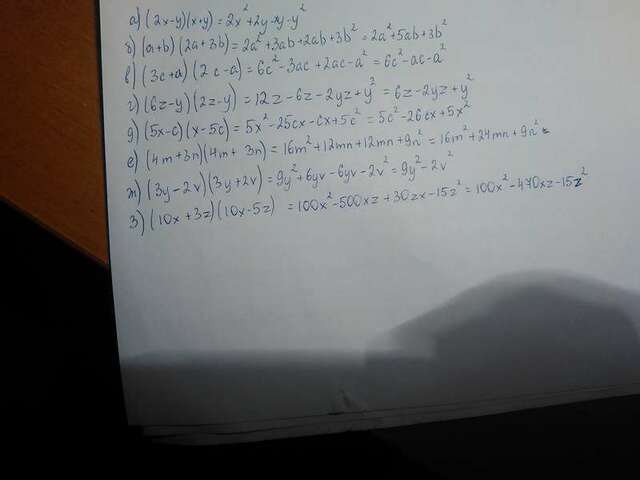 а) (2x-y)(x+y)=2x²+2y-xy-y²
б) (a+b)(2a+3b)=2a²+3ab+2ab+3b²=2a²+5ab+3b²
в) (3c+a)(2c-a)=6c²-3ac+2ac-a²=6c²-ac-a²
г) (6z-y)(2z-y)=12z-6z-2yz+y²=6z-2yz+y²
д) (5x-c)(x-5c)=5x²-25cx-cx+5c²=5c²-26cx+5x²
е) (4m+3n)(4m+3n)=16m²+12mn+12mn+9n²=16m²+24mn+9n²
ж) (3y-2v)(3y+2v)=9y²+6yv-6yv-2v²=9y²-2v²
з) (10x+3z)(10x-5z)=100x²-500xz+30zx-15z²=100x²-470xz-15z²